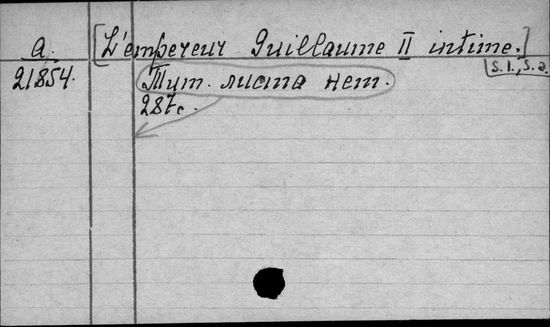 a. [L'empereur Guillaume II intime.]
21854. Тит. листа нет. s. l., s. a
287с.